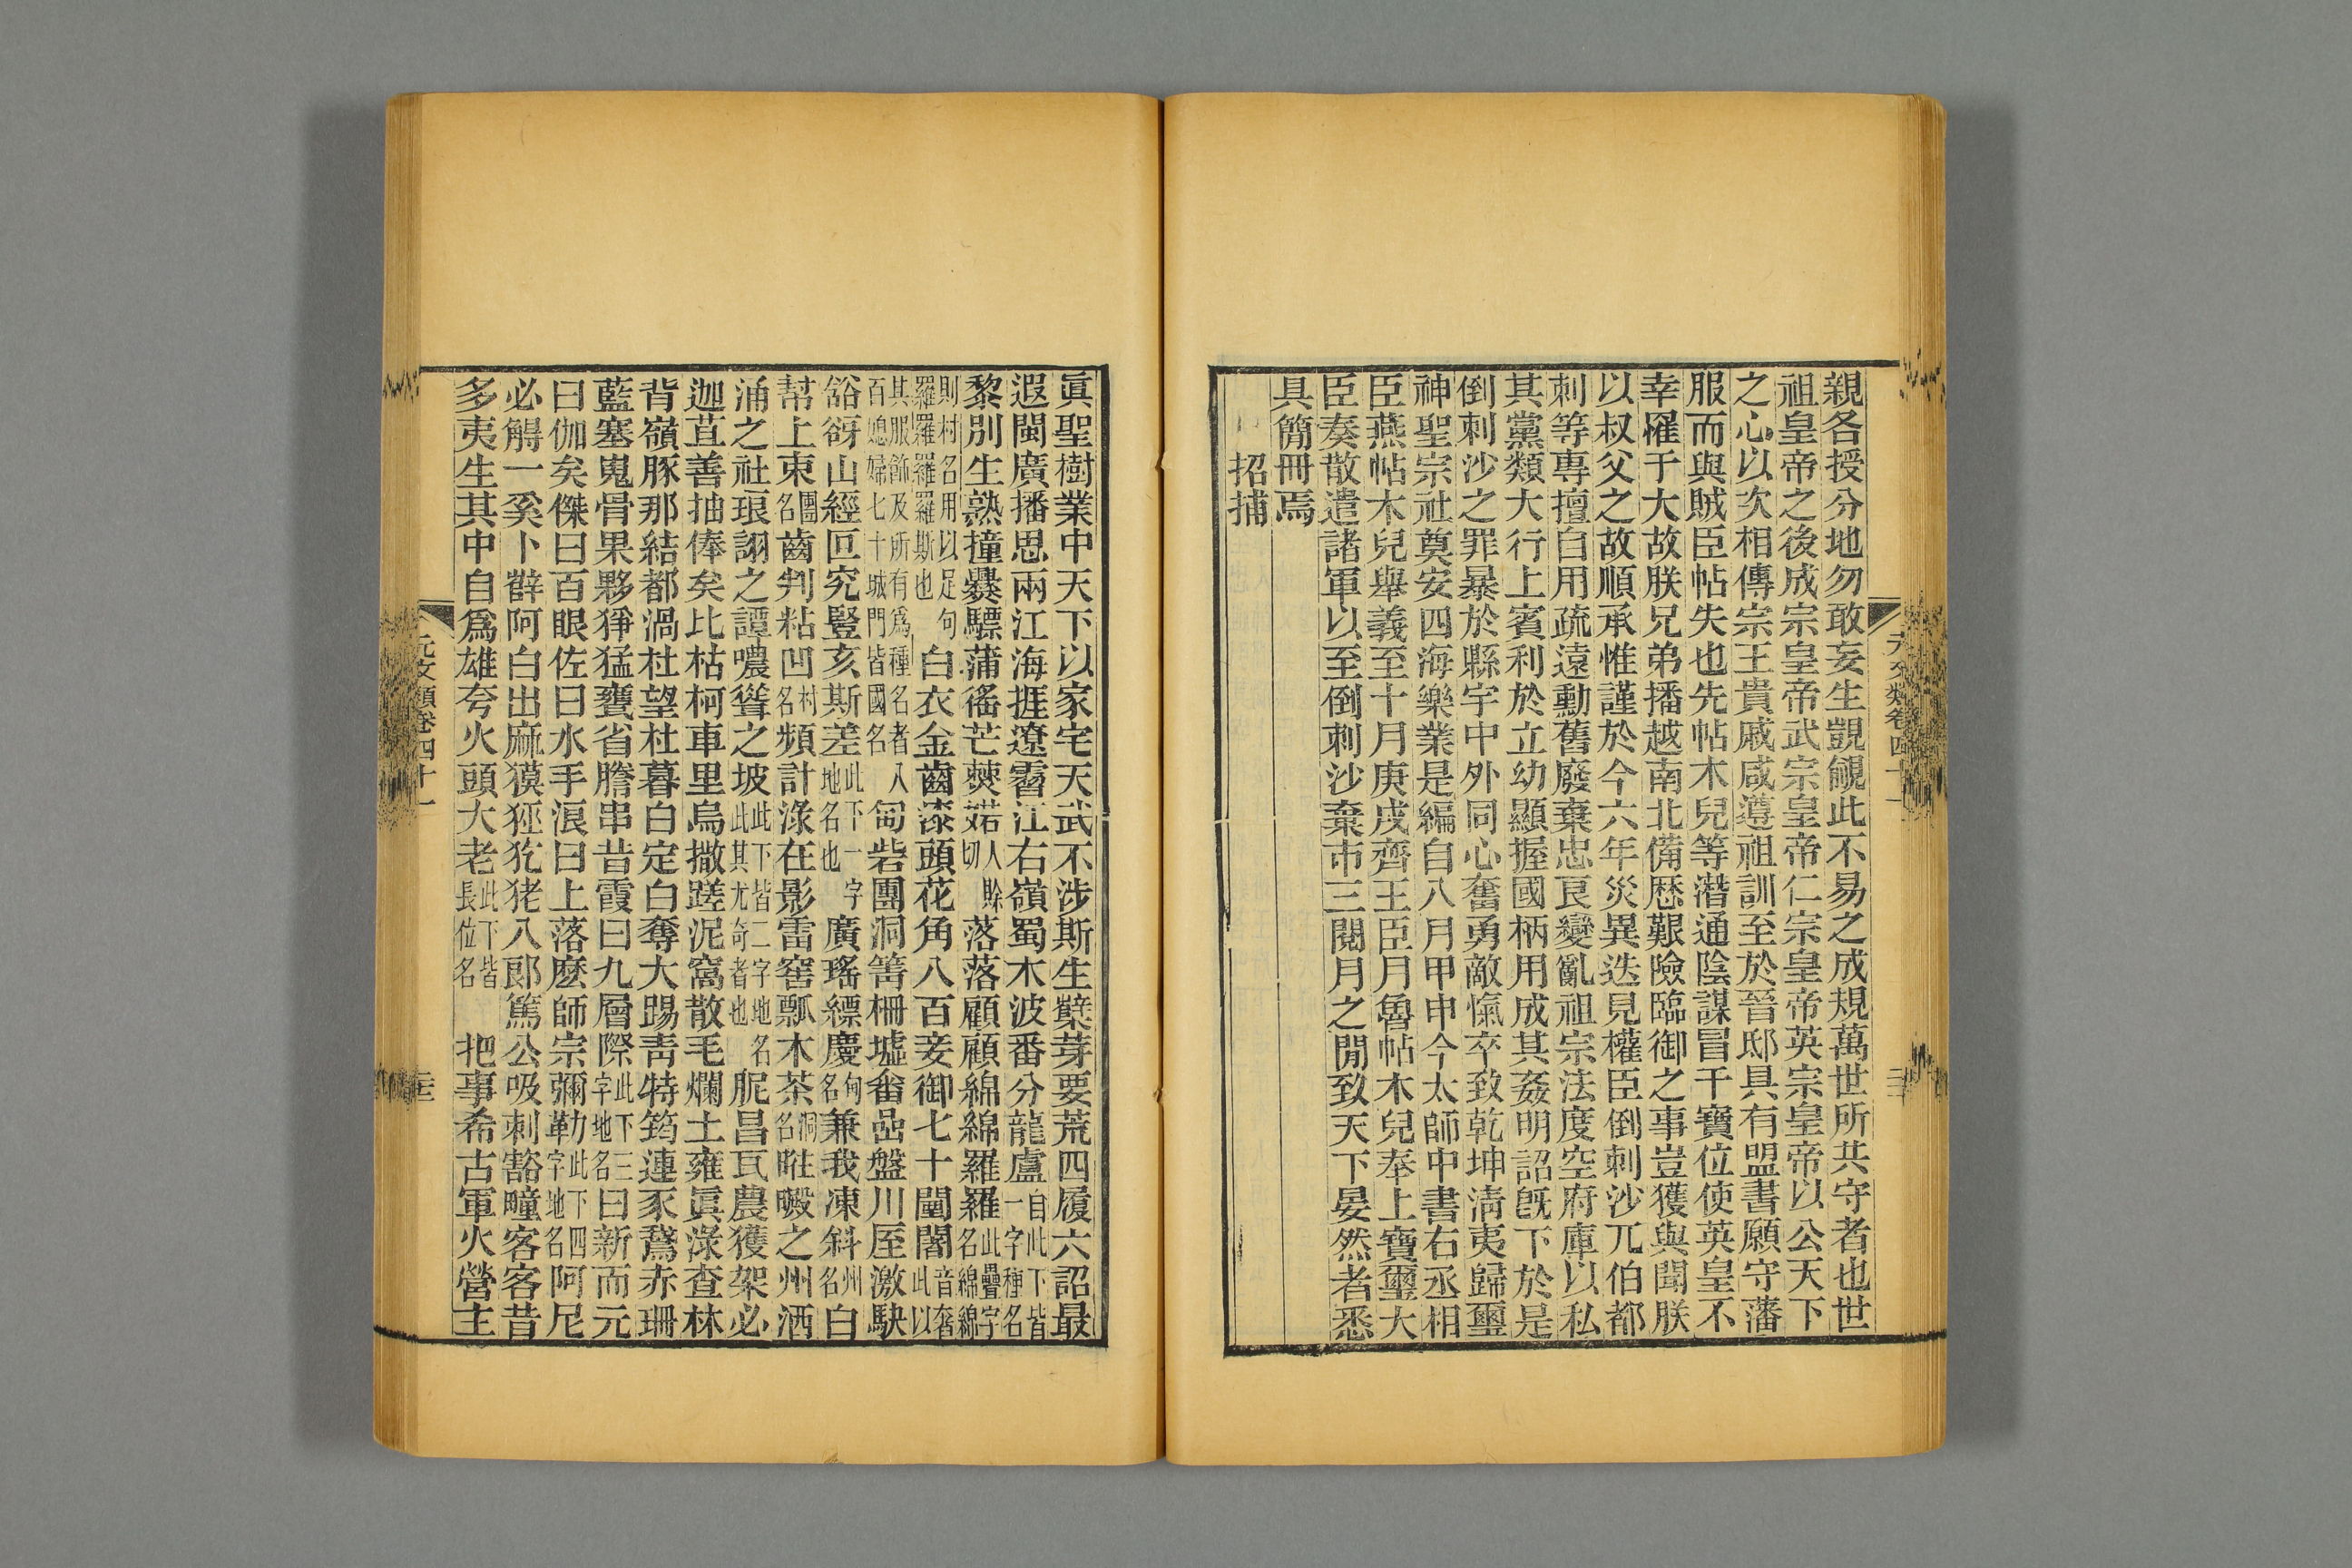 親各授分地勿敢妄生覬覦此不易之成規萬世所共守者也世
祖皇帝之後成宗皇帝武宗皇帝仁宗皇帝英宗皇帝以公天下
之心以次相傳宗王貴戚咸遵祖訓至於晉邸具有盟書願守藩
服而與賊臣帖失也先帖木兒等潛通陰謀冒干寶位使英皇不
幸罹于大故朕兄弟播越南北備歷艱險臨御之事豈獲與聞朕
以叔父之故順承惟謹於今六年災異迭見權臣倒刺沙兀伯都
刺等專擅自用疏遠勳舊廢棄忠良變亂祖宗法度空府庫以私
其黨類大行上賓利於立幼顯握國柄用成其姦明詔旣下於是
倒刺沙之罪暴於縣宇中外同心奮勇敵愾卒致乾坤清夷歸璽
神聖宗社奠安四海樂業是編自八月甲申今太師中書右丞相
臣燕帖木兒舉義至十月庚戌齊王臣月魯帖木兒奉上寶璽大
臣奏散遣諸軍以至倒刺沙棄市三閱月之閒致天下晏然者悉
具簡冊焉
招捕
元文類卷四十一
眞聖樹業中天下以家宅天武不涉斯生櫱芽要荒四履六詔最
遐閩廣播思兩江海捱遼霫江右嶺蜀木波番分龍盧自此下皆一字種名
黎別生熟撞爨驃蒲徭芒僰婼人賒切落落顧顧綿綿羅羅此疊字名綿綿
則村名用以足句羅羅羅羅斯也白衣金齒漆頭花角八百妾御七十闉闍音奢此以
其服飾及所有爲種名者八百媳婦七十城門皆國名甸砦團洞箐柵墟畬嵒盤川厔激駃
谽谺山經叵究豎亥斯差此下一字地名也廣瑤縹慶甸名兼我凍斜州名白
幇上束團名齒判粘凹村名頻計淥在影雷窖瓢木茶洞名暀毈之州洒
涌之社琅詡之譚噥聳之坡此下皆二字地名此其尤奇者也胒昌瓦農獲架必
迦苴善抽俸矣比枯柯車里烏撒蹉泥窩散毛爛土雍眞淥查林
背嶺豚那結都渦杜望杜暮白定白奪大踢靑特筠連豕鵞赤珊
藍塞嵬骨果夥猙猛甕省謄串昔霞曰九層際此下三字地名曰新而元
曰伽矣傑曰百眼佐曰水手浪曰上落麽師宗彌勒此下四字地名阿尼
必𧣴一奚卜辥阿白出麻獏狉犵狫八郞篤公吸刺豁疃客客昔
多夷生其中自爲雄夸火頭大老此下皆長位名把事希古軍火營主
元文類卷四十一